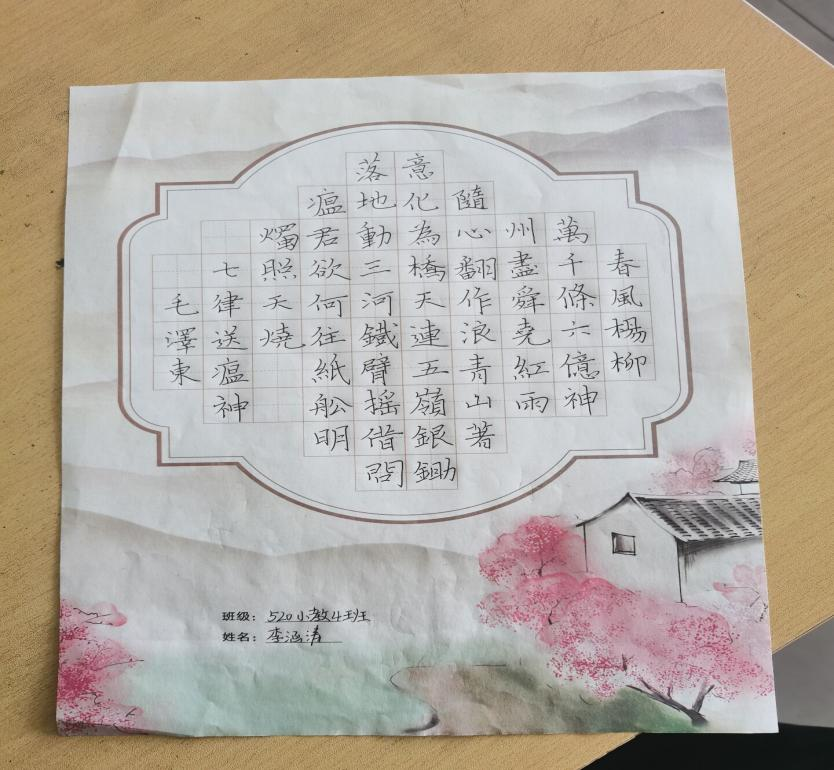 春風楊柳
萬千條六億神
州盡舜堯紅雨
隨心翻作浪青山著
意化為橋天連五嶺銀鋤
落地動三河鐵臂搖借問
瘟君欲何往紙舩明
燭照天燒
七律送瘟神
毛澤東
班级：520小教4班
姓名：李涵涛